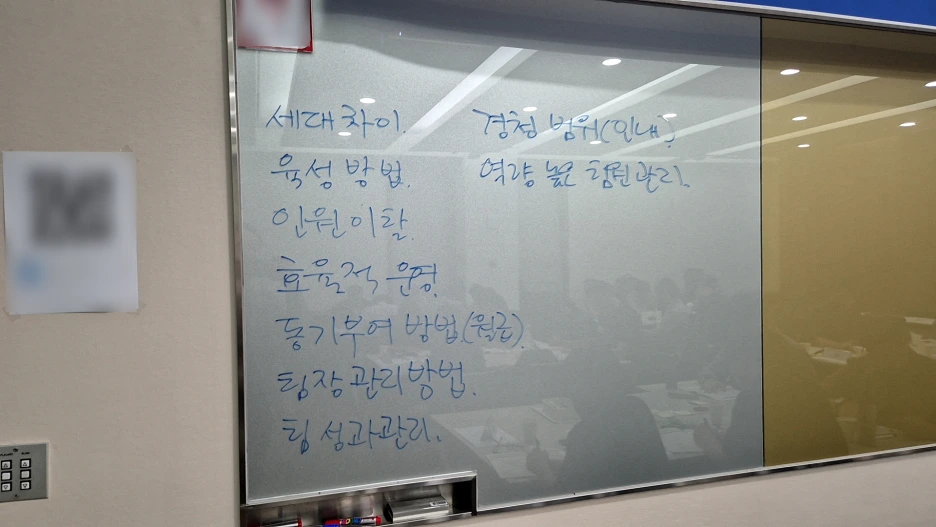 세대 차이.
육성 방법.
인원이탈.
효율적 운영.
동기부여 방법(월급).
팀장관리방법.
팀 성과관리.
경청 범위(인내)
역량 높은 팀원관리.